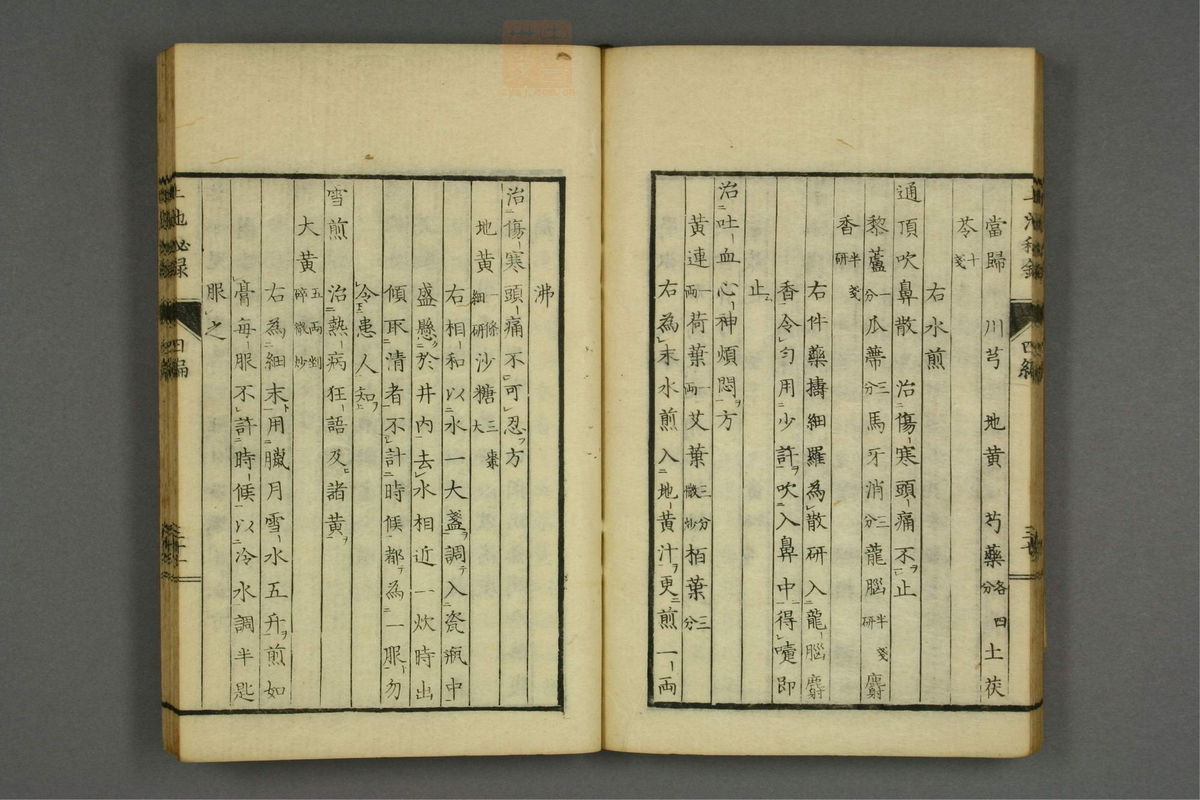 當歸 川芎 地黄 芍藥各四分 土茯
苓十戔
右水煎
通頂吹鼻散 治傷寒頭痛不止
黎蘆一分 瓜蔕三分 馬牙消三分 龍腦半戔研 麝
香半戔研
右件藥擣細羅為散研入龍腦麝
香令勻用少許吹入鼻中得嚏即
止
治吐血心神煩悶方
黄連一兩 荷葉一兩 艾葉三分微炒 栢葉三分
右為末水煎入地黄汁更煎一両
沸
治傷寒頭痛不可忍方
地黄一條細研 沙糖三大棗
右相和以水一大盞調入瓷瓶中
盛懸於井内去水相近一炊時出
傾取清者不計時候都為一服勿
令患人知
雪煎 治熱病狂語及諸黄
大黄五兩剉碎微炒
右為細末用臘月雪水五升煎如
膏每服不許時候以冷水調半匙
服之
秘録
四編